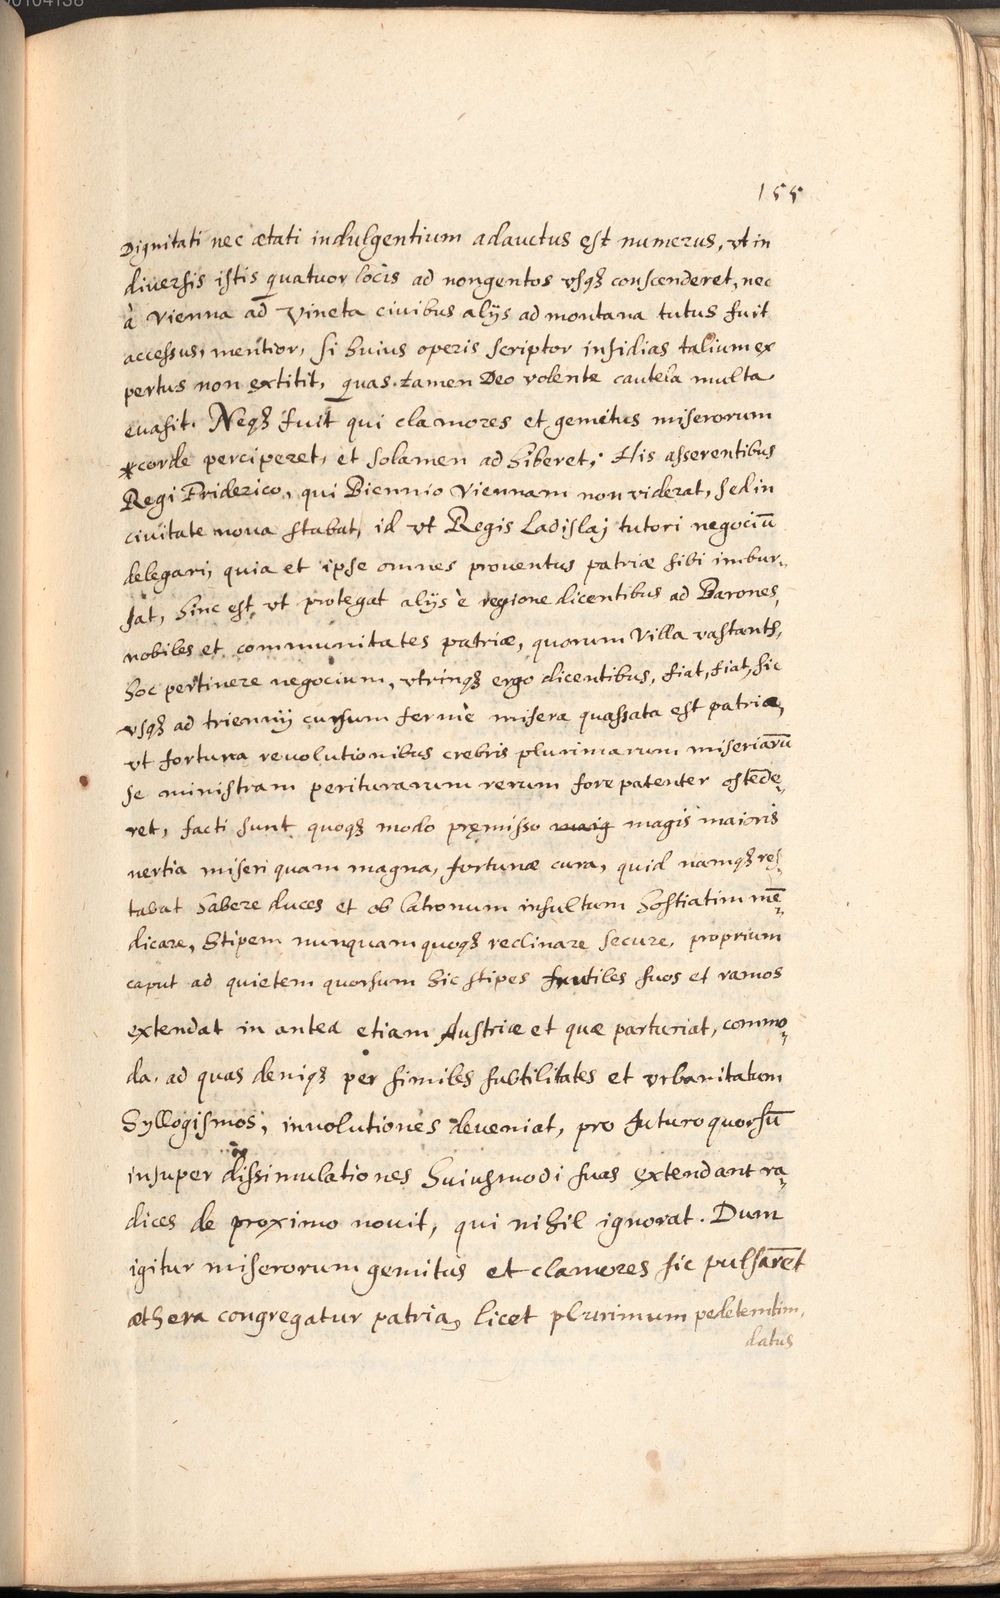 00104138
155
Dignitati nec ætati indulgentium adauctus est numerus, vt in
diuersis istis quatuor locis ad nongentos vsqȝ conscenderet, nec
à Vienna ad Vineta ciuibus alijs ad montana tutus fuit
accessus, mentior, si huius operis scriptor insidias talium ex
pertus non extitit, quas tamen Deo volente cautela multa
euasit. Neqȝ fuit qui clamores et gemitus miserorum
corde perciperet, et solamen adhiberet; His asserentibus
Regi Friderico, qui Biennio Viennam non viderat, sed in
ciuitate noua stabat, id vt Regis Ladislaj tutori negociū
delegari, quia et ipse omnes prouentus patriæ sibi imbur„
sat, hinc est, vt protegat alijs è regione dicentibus ad Barones,
nobiles et communitates patriæ, quorum Villa vastants,
hoc pertinere negocium, vtrinqȝ ergo dicentibus, fiat, fiat, sic
vsqȝ ad triennij cursum fermè misera quassata est patria,
vt fortuna reuolutionibus crebris plurimarum miseriarū
se ministram periturarum rerum fore patenter ostēde„
ret, facti sunt quoqȝ modo pręmisso maig magis maioris
nertia miseri quam magna, fortunæ cura, quid namqȝ res„
tabat habere duces et ob latronum insultum hostiatim mē„
dicare, Stipem nunquam quoqȝ reclinare secure, proprium
caput ad quietem quorsum hic stipes frutiles suos et ramos
extendat in antea etiam Austriæ et quæ parturiat, commo„
da, ad quas deniqȝ per similes subtilitates et vrbanitatum
Syllogismos, inuolutiones deueniat, pro futuro quorsū
insuper dissimulationes huiusmodi suas extendant ra„
dices de proximo nouit, qui nihil ignorat. Dum
igitur miserorum gemitus et clamores sic pulsarēt
æthera congregatur patria, licet plurimum pedetemtim,
datus